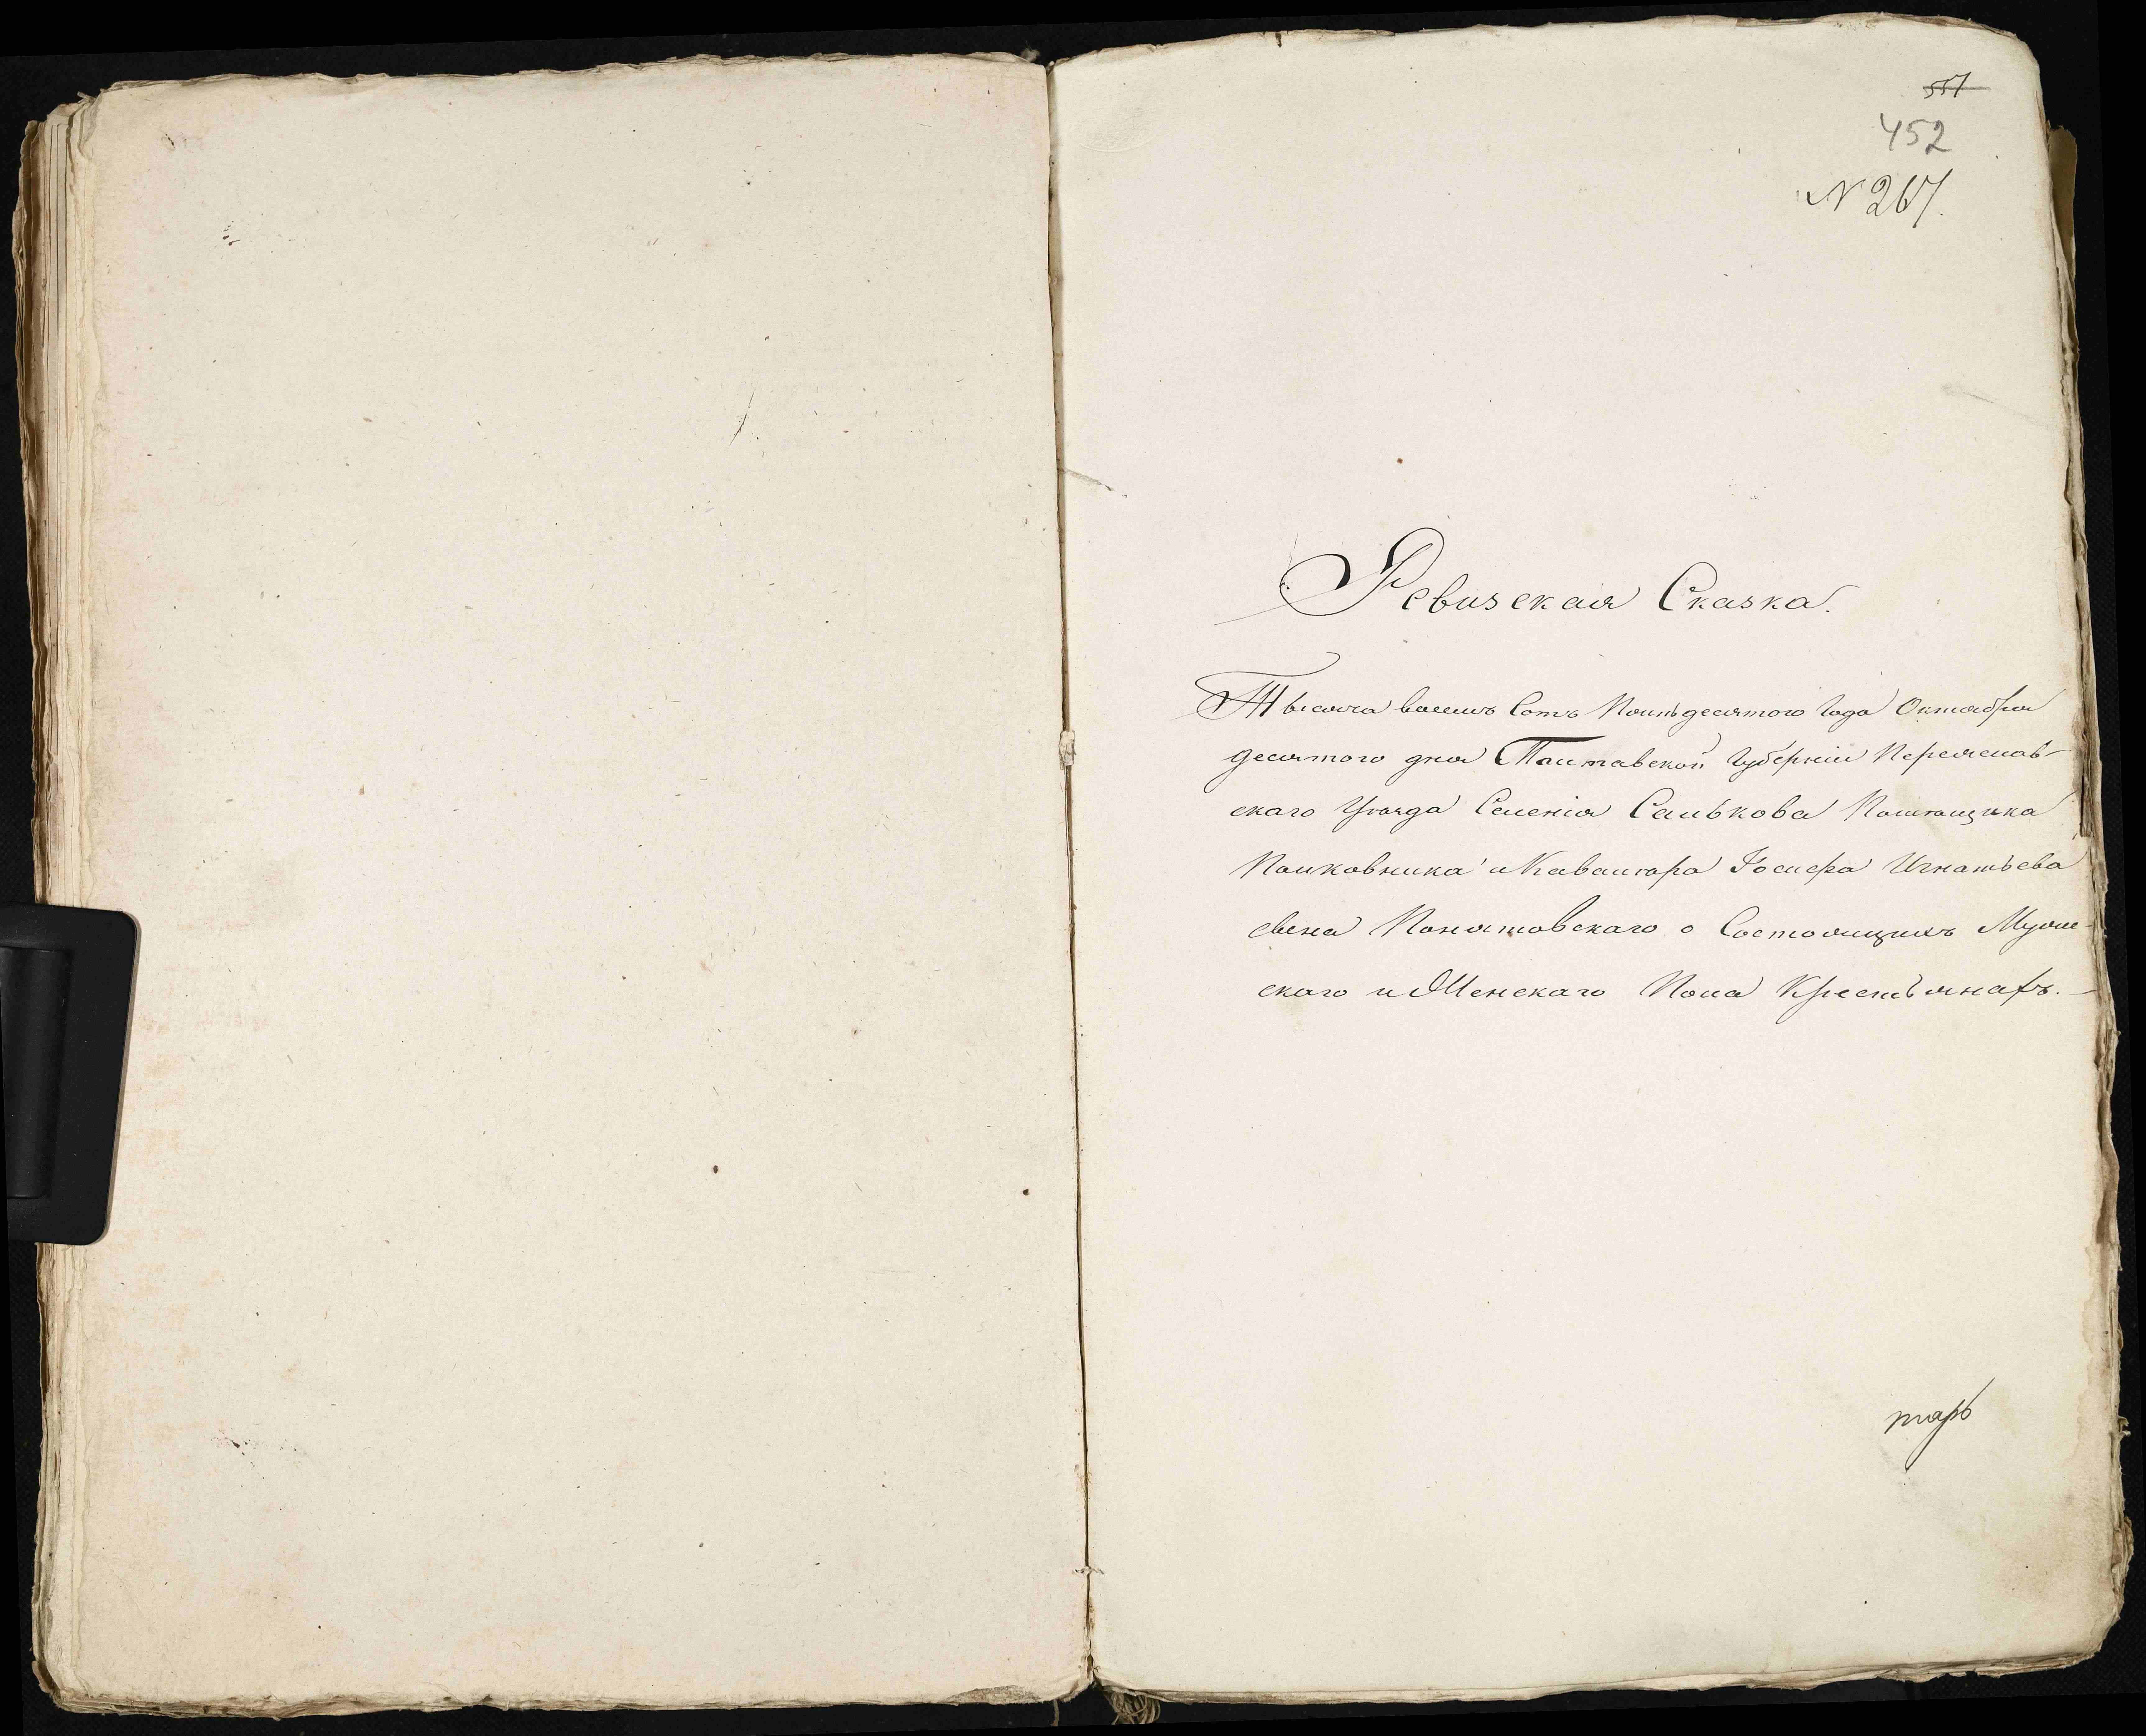 557
452
N 267.
Ревизская Сказка.
Тысяча восемь Сотъ Пятьдесятого Года Октября
десятого дня Полтавской Губерніи Переяслав-
скаго Уѣзда Селенія Салькова Помѣщика
Полковника и Кавалера Іосифа Игнатьева
сына Понятовскаго о Состоящихъ Муже-
скаго и Женскаго Пола Крестьянахъ.
тарь